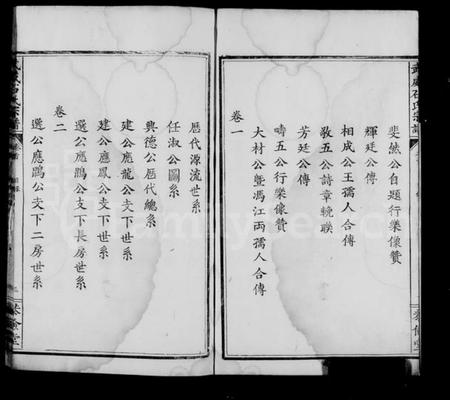 武威石氏宗譜
斐然公自題行樂像贊
輝廷公傳
相成公王孺人合傳
敬五公詩章輓聯
芳廷公傳
疇五公行樂像贊
大材公暨馮江兩孺人合傳
卷一
歷代源流世系
任淑公圖系
興德公歷代總系
建公應龍公支下世系
建公應鳳公支下世系
選公應鵬公支下長房世系
卷二
選公應鵬公支下二房世系